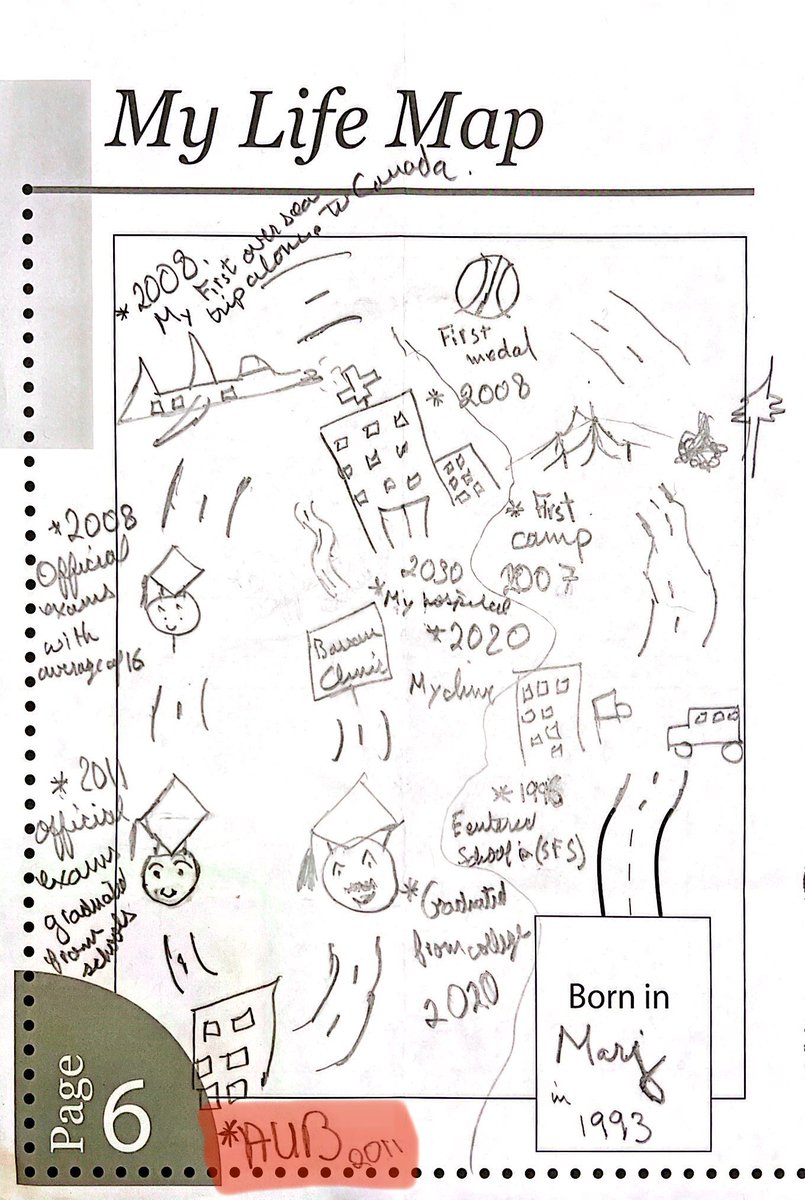 My Life Map
* 2008.
My First oversea
trip alone to Canada.
First
medal
* 2008
* First
camp
2007
* 2008
Official
exams
with
average of 16
2030
* My hospital
* 2020
My clinic
Clinic
* 2011
official
exams
graduated
from
schools
Eantered
School in (SFS)
* Graduated
from college
2020
Born in
Marj
in
1993
Page
6
* AUB 2011